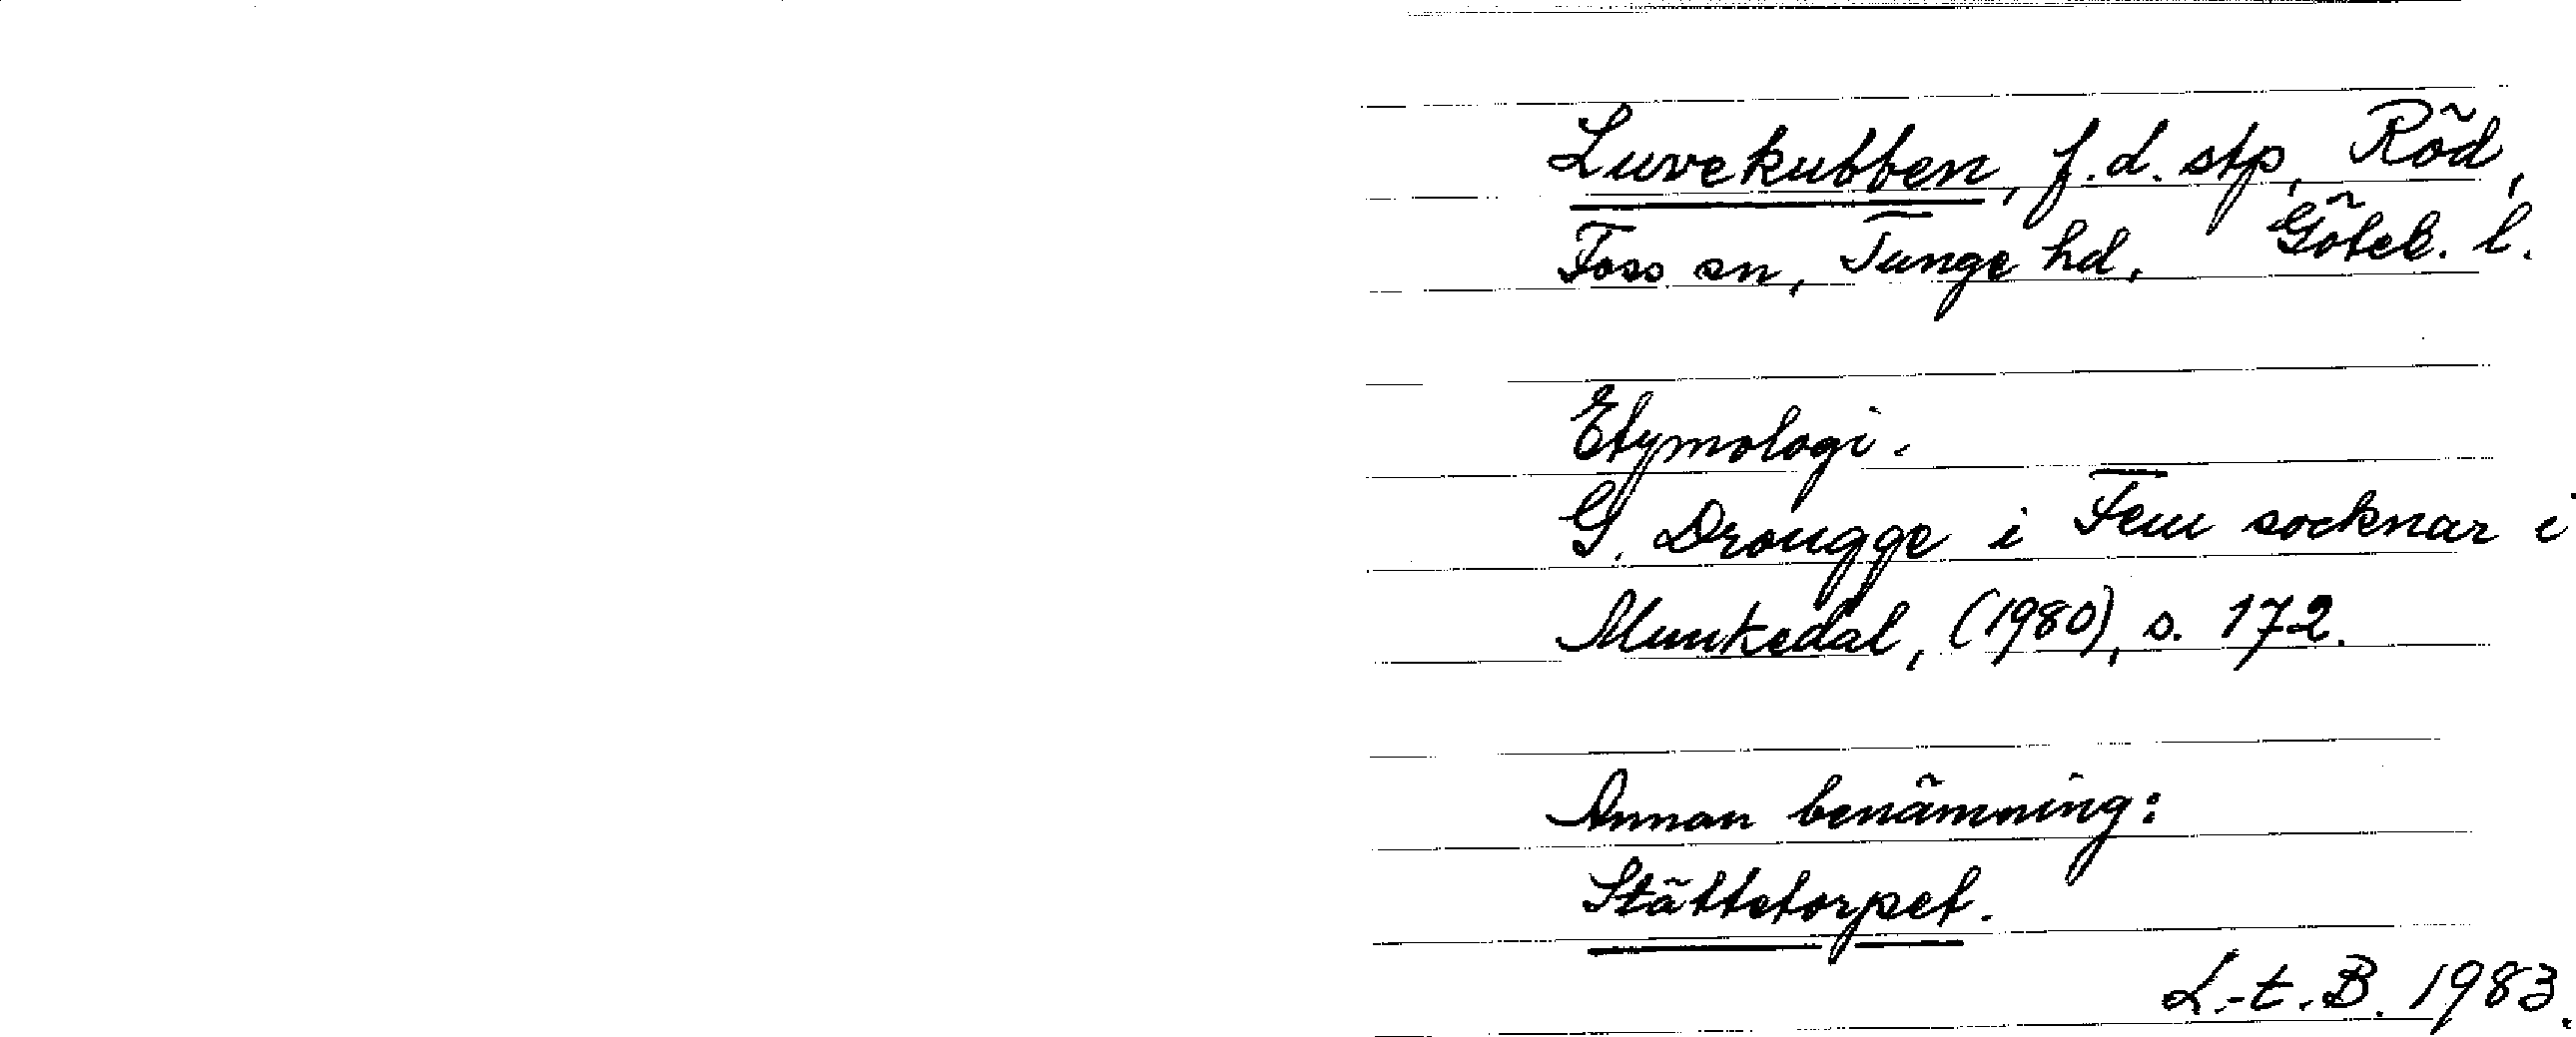 Luvekubben, f.d. stp, Röd,
Foss sn, Tunge hd, Göteb. l.
Etymologi.
G. Drougge i Fem socknar i
Munkedal, (1980), s. 172.
Annan benämning:
Stättetorpet.
L.-t. B. 1983.